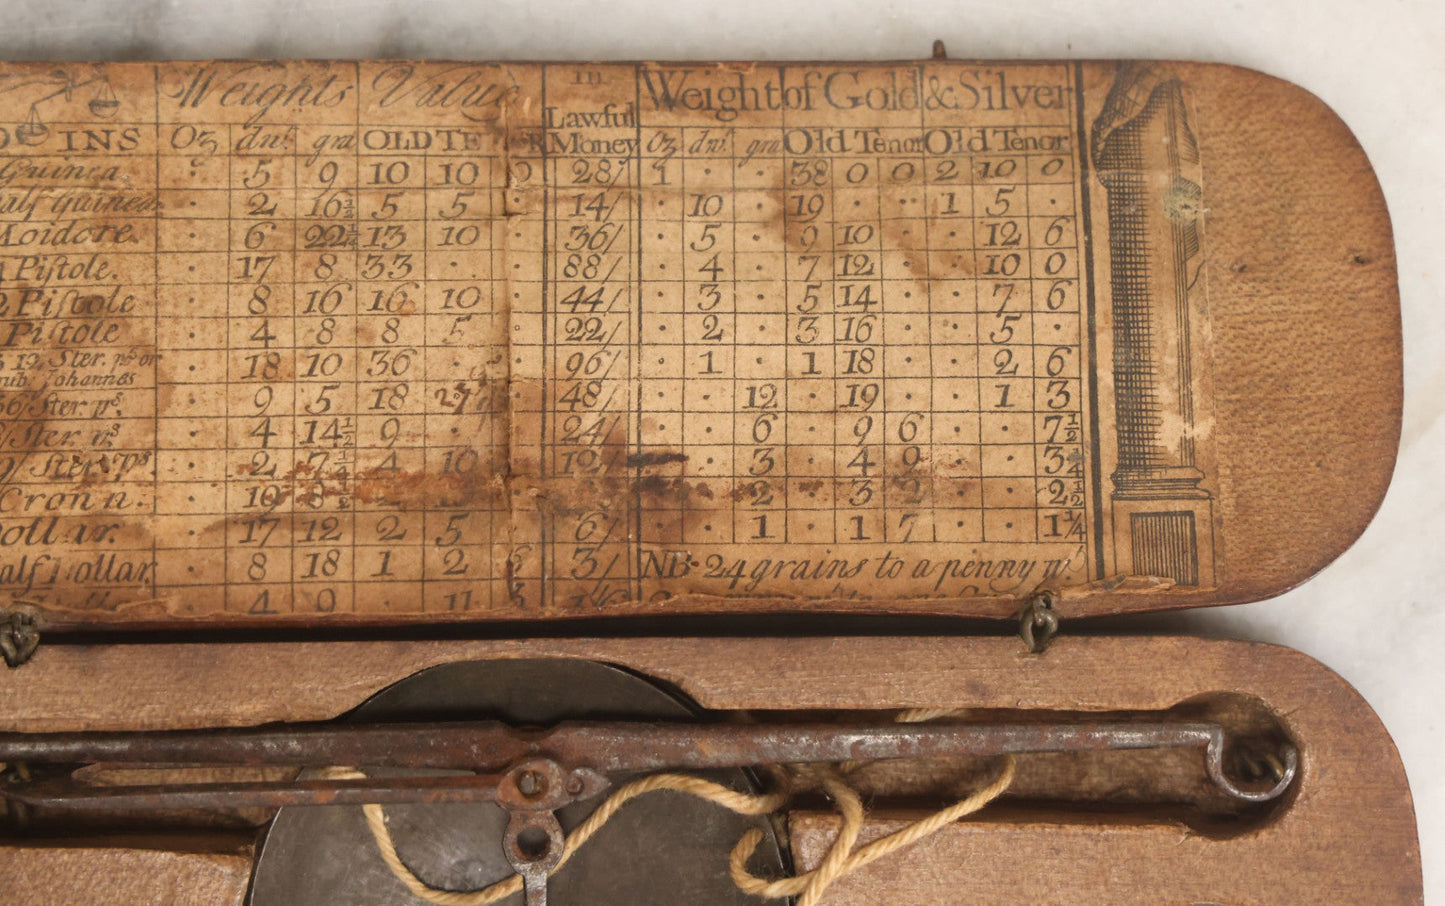 Weights Value in Lawful Money Weight of Gold & Silver
INS Oz dwt gra OLD TE Oz dwt gra Old Tenor Old Tenor
Guinea. · 5 9 10 10 0 28/ 1 · · 38 0 0 2 10 0
alf Guinea · 2 16½ 5 5 · 14/ · 10 · 19 · · 1 5 ·
Moidore. · 6 22½ 13 10 · 36/ · 5 · 9 10 · · 12 6
4 Piſtole. · 17 8 33 · · 88/ · 4 · 7 12 · · 10 0
2 Piſtole · 8 16 16 10 · 44/ · 3 · 5 14 · · 7 6
Piſtole · 4 8 8 5 · 22/ · 2 · 3 16 · · 5 ·
12 Ster. ps or Johannes · 18 10 36 · · 96/ · 1 · 1 18 · · 2 6
36/ Ster ps. · 9 5 18 · 48/ · · 12 · 19 · · 1 3
Ster ps · 4 14½ 9 · 24/ · · 6 · 9 6 · · 7½
9/ Ster ps. · 2 7¼ 4 10 12/ · · 3 · 4 9 · · 3¼
Crown. · 19 8½ · · 2 · 3 2 · · 2½
Dollar. · 17 12 2 5 6/ · · 1 · 1 7 · · 1¼
alf Dollar. · 8 18 1 2 6 3/ NB· 24 grains to a penny wt.
· 4 9 · 11 3 1/6